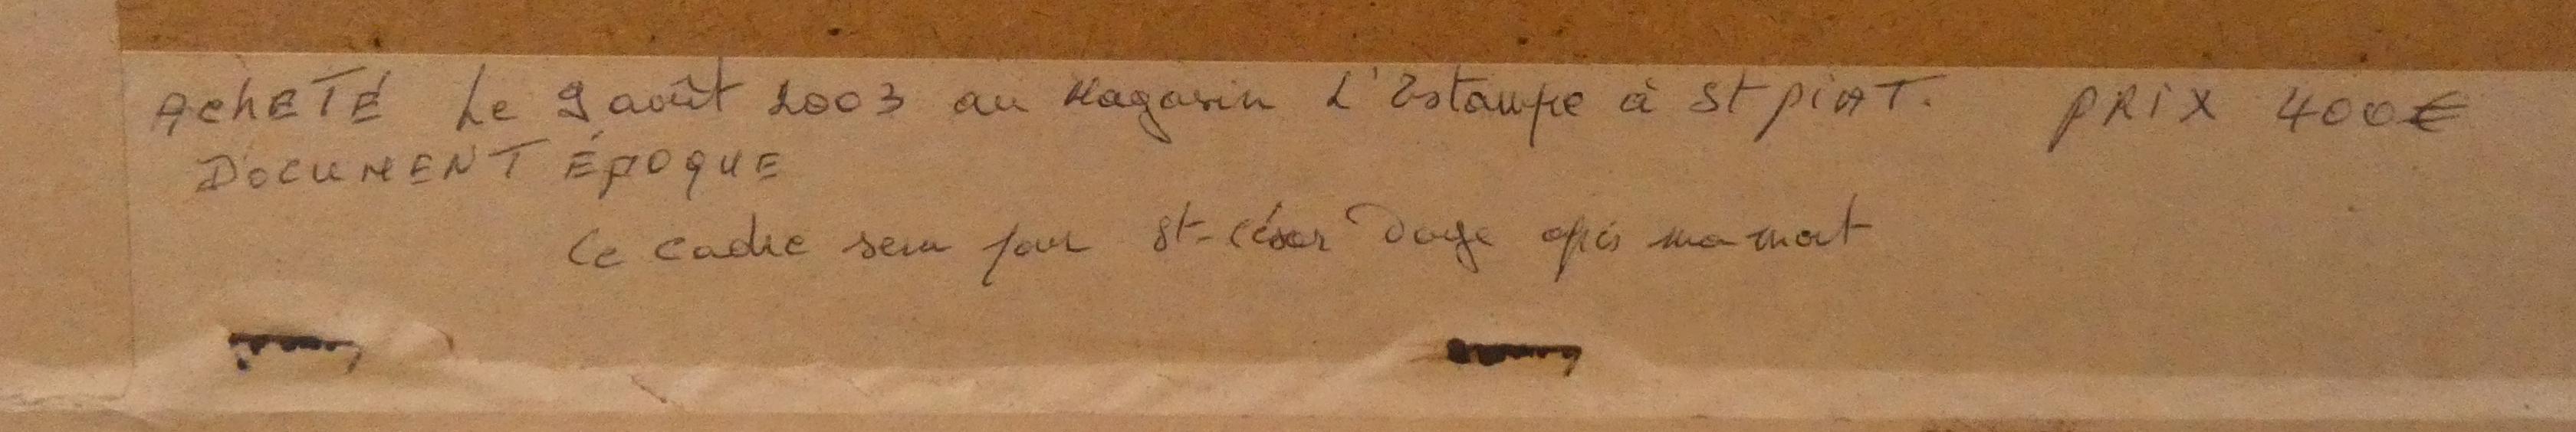 ACHETÉ Le 9 août 2003 au Magasin L'Estampe à St PIAT. PRIX 400€
DOCUMENT ÉPOQUE
Ce cadre sera pour St-César après ma mort